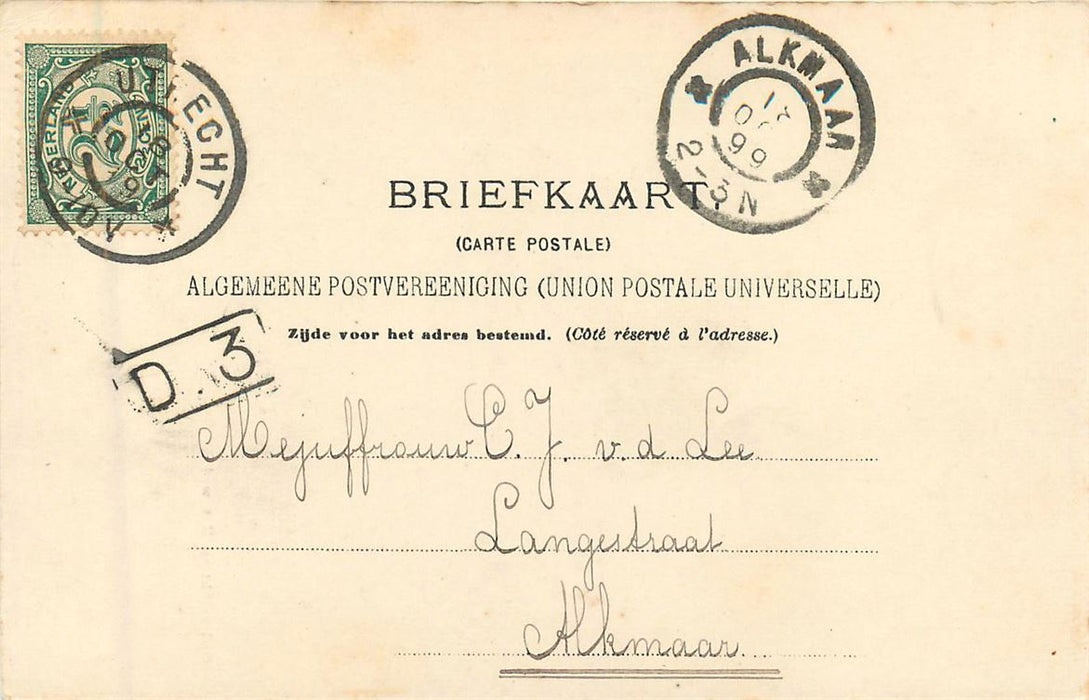 UTRECHT
ALKMAAR
99
2-3N
NEDERLAND
2½
BRIEFKAART.
(CARTE POSTALE)
ALGEMEENE POSTVEREENIGING (UNION POSTALE UNIVERSELLE)
Zijde voor het adres bestemd. (Côté réservé à l'adresse.)
D.3
Mejuffrouw C. J. v. d. Lee
Langestraat
Alkmaar.